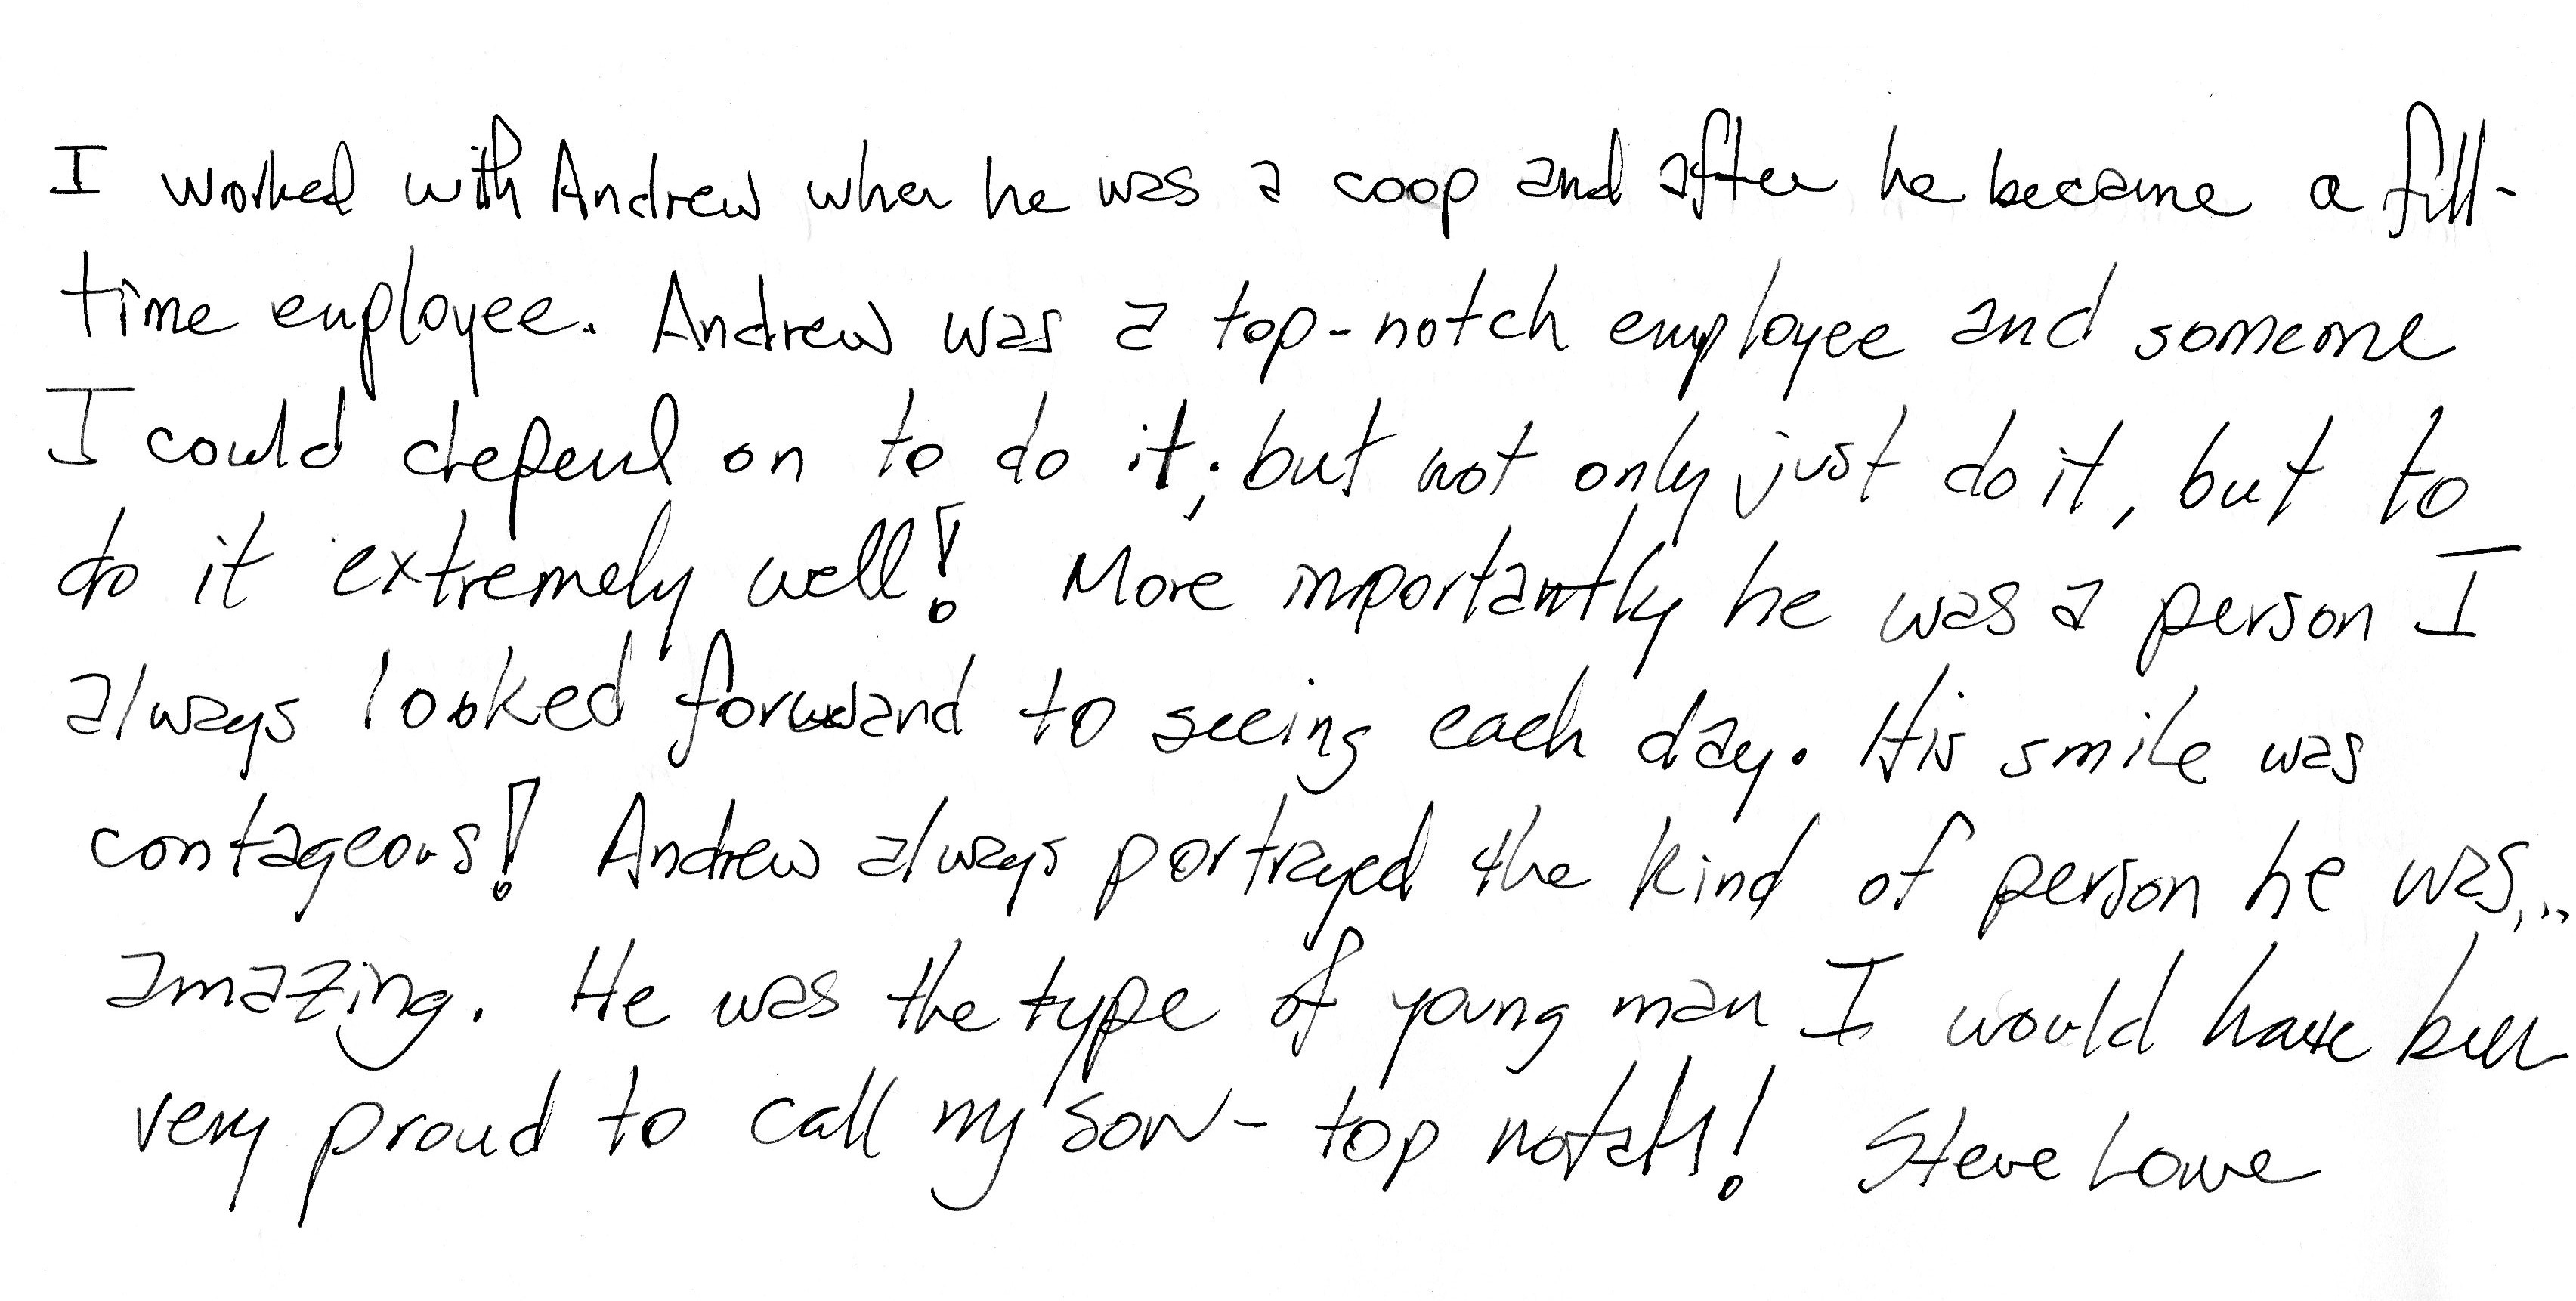 I worked with Andrew when he was a coop and after he became a full-
time employee. Andrew was a top-notch employee and someone
I could depend on to do it; but not only just do it, but to
do it extremely well! More importantly he was a person I
always looked forward to seeing each day. His smile was
contageous! Andrew always portrayed the kind of person he was...
amazing. He was the type of young man I would have been
very proud to call my son - top notch! Steve Lowe